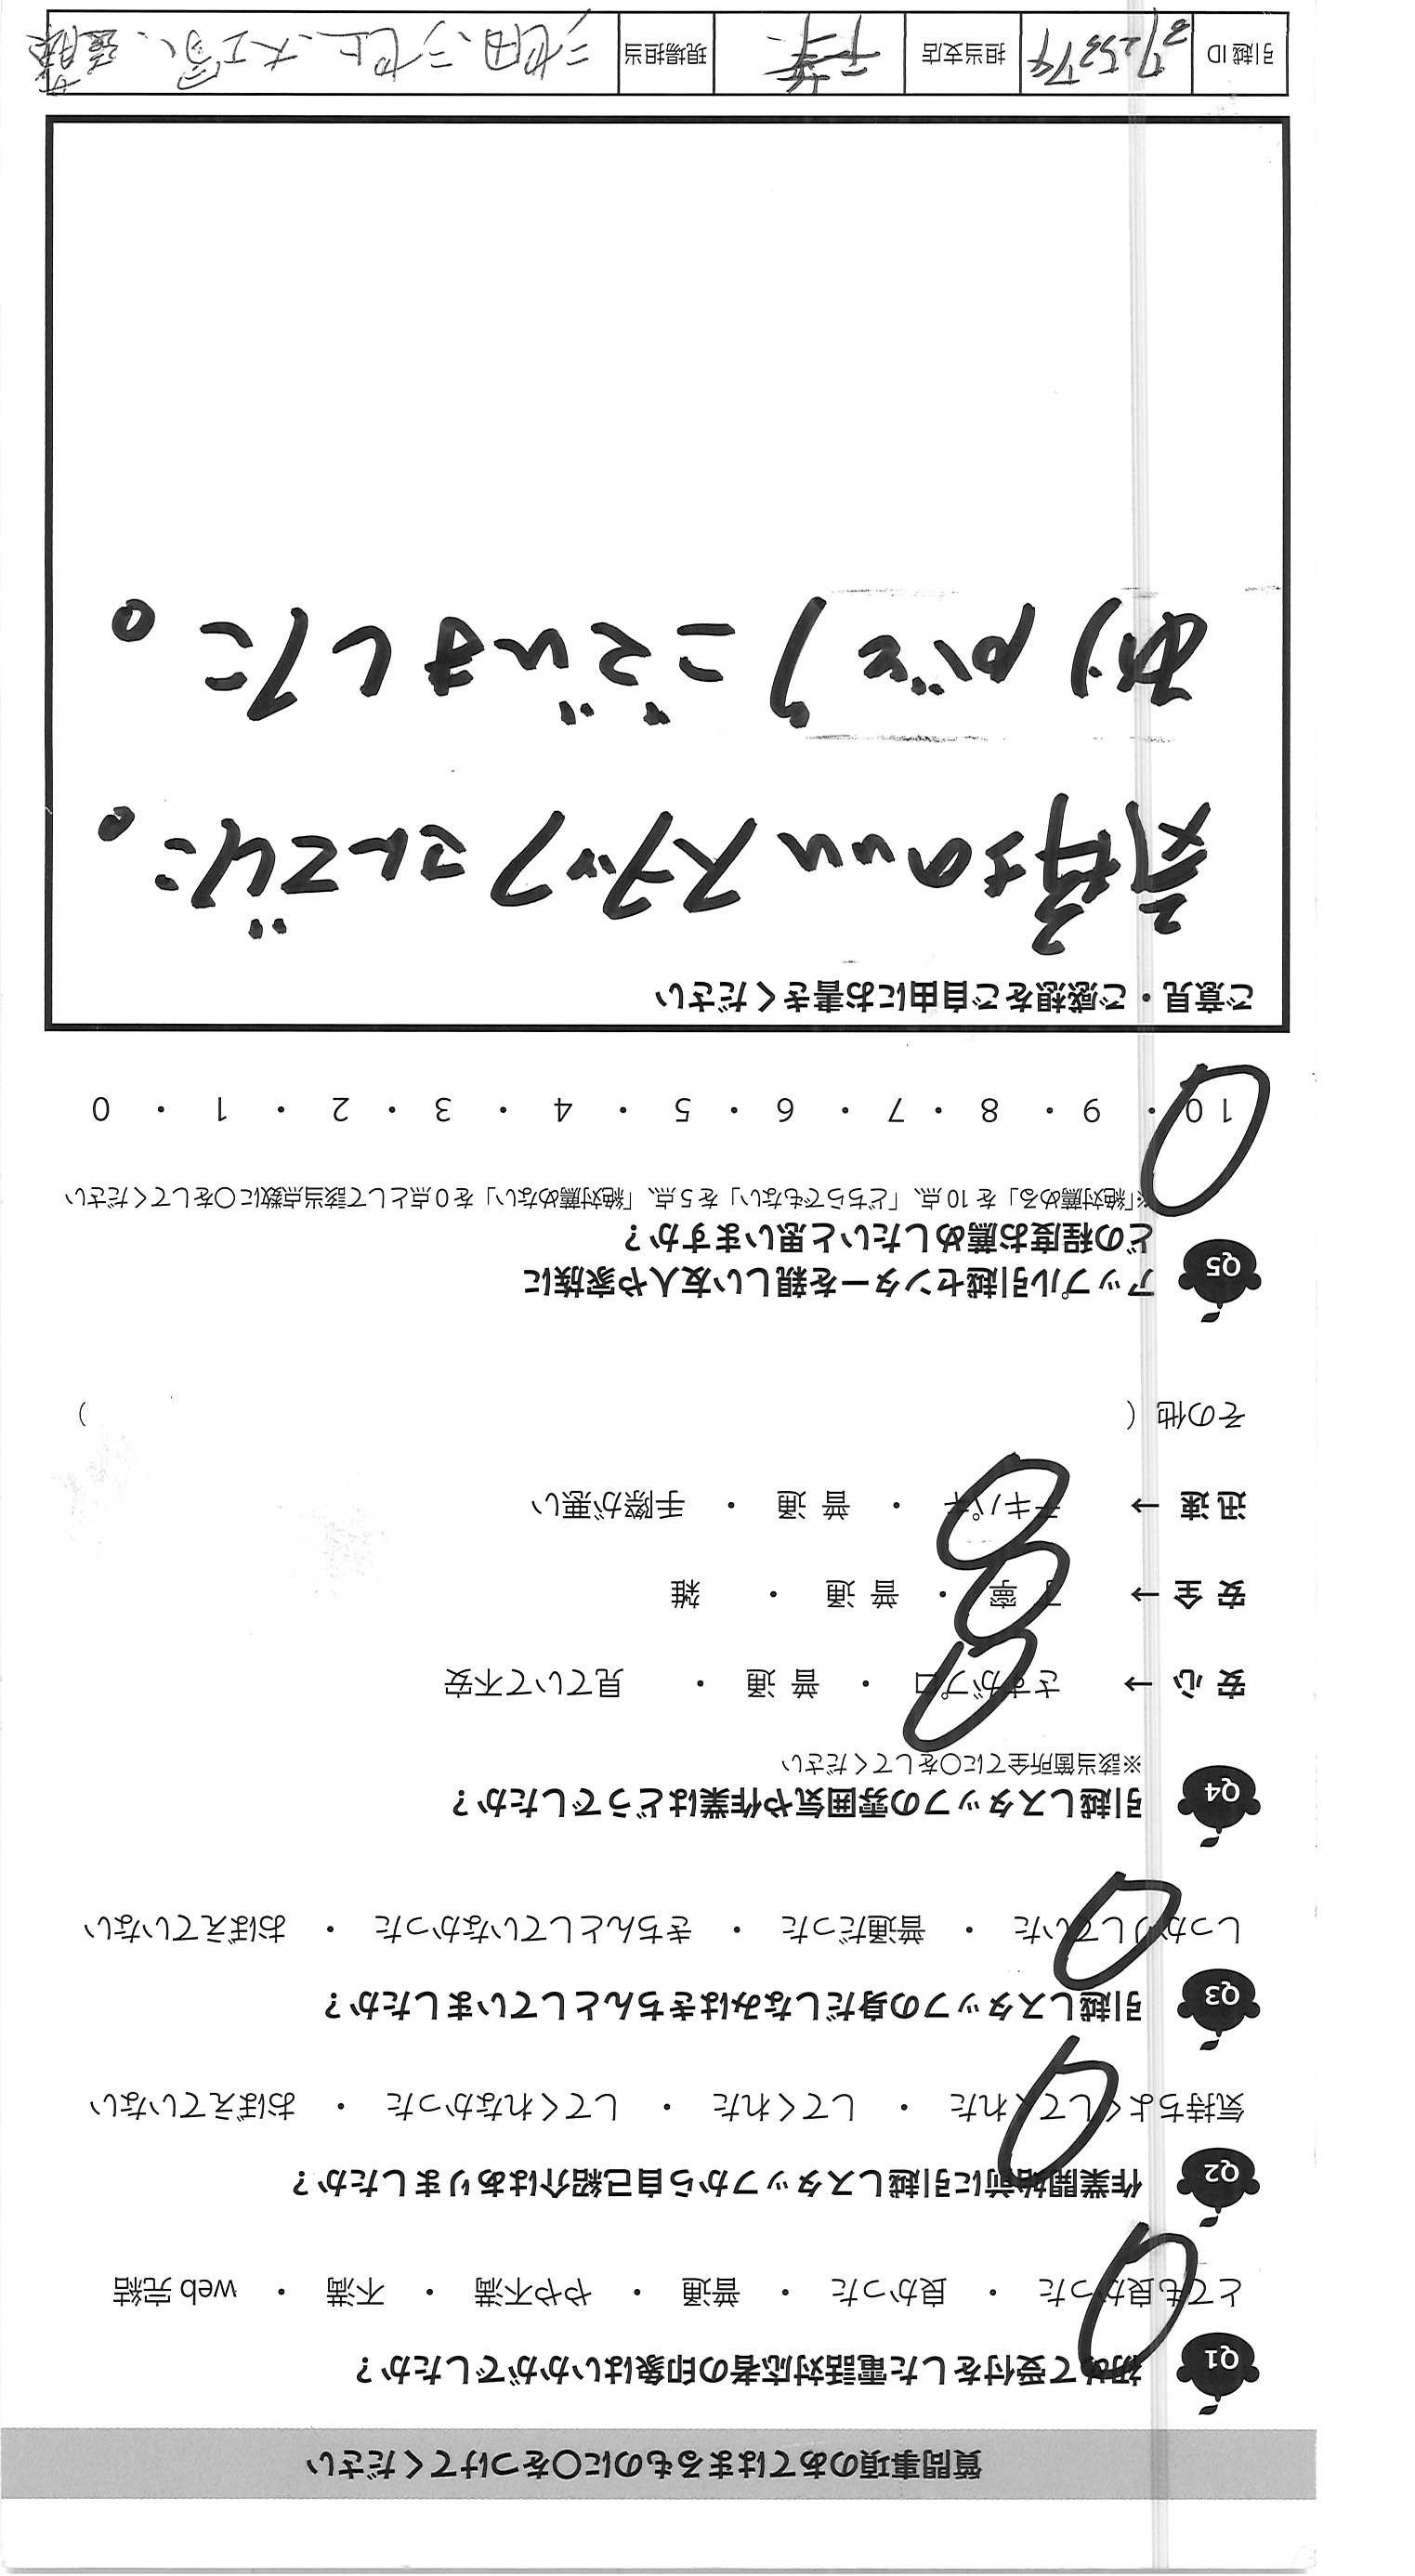 質問事項のあてはまるものに○をつけてください
Q1 初めて受付をした電話対応者の印象はいかがでしたか？
とても良かった ・ 良かった ・ 普通 ・ やや不満 ・ 不満 ・ web 完結
Q2 作業開始前に引越しスタッフから自己紹介はありましたか？
気持ちよくしてくれた ・ してくれた ・ してくれなかった ・ おぼえていない
Q3 引越しスタッフの身だしなみはきちんとしていましたか？
しっかりしていた ・ 普通だった ・ きちんとしていなかった ・ おぼえていない
Q4 引越しスタッフの雰囲気や作業はどうでしたか？
※該当箇所全てに○をしてください
安 心 → さすがプロ ・ 普 通 ・ 見ていて不安
安 全 → 丁 寧 ・ 普 通 ・ 雑
迅 速 → テキパキ ・ 普 通 ・ 手際が悪い
その他（ ）
Q5 アップル引越センターを親しい友人や家族に
どの程度お薦めしたいと思いますか？
※「絶対薦める」を 10 点、「どちらでもない」を 5 点、「絶対薦めない」を 0 点として該当点数に○をしてください
10 ・ 9 ・ 8 ・ 7 ・ 6 ・ 5 ・ 4 ・ 3 ・ 2 ・ 1 ・ 0
ご意見・ご感想をご自由にお書きください
気持ちのいいスタッフさんでした。
ありがとうございました。
引越 ID 担当支店 千葉 現場担当